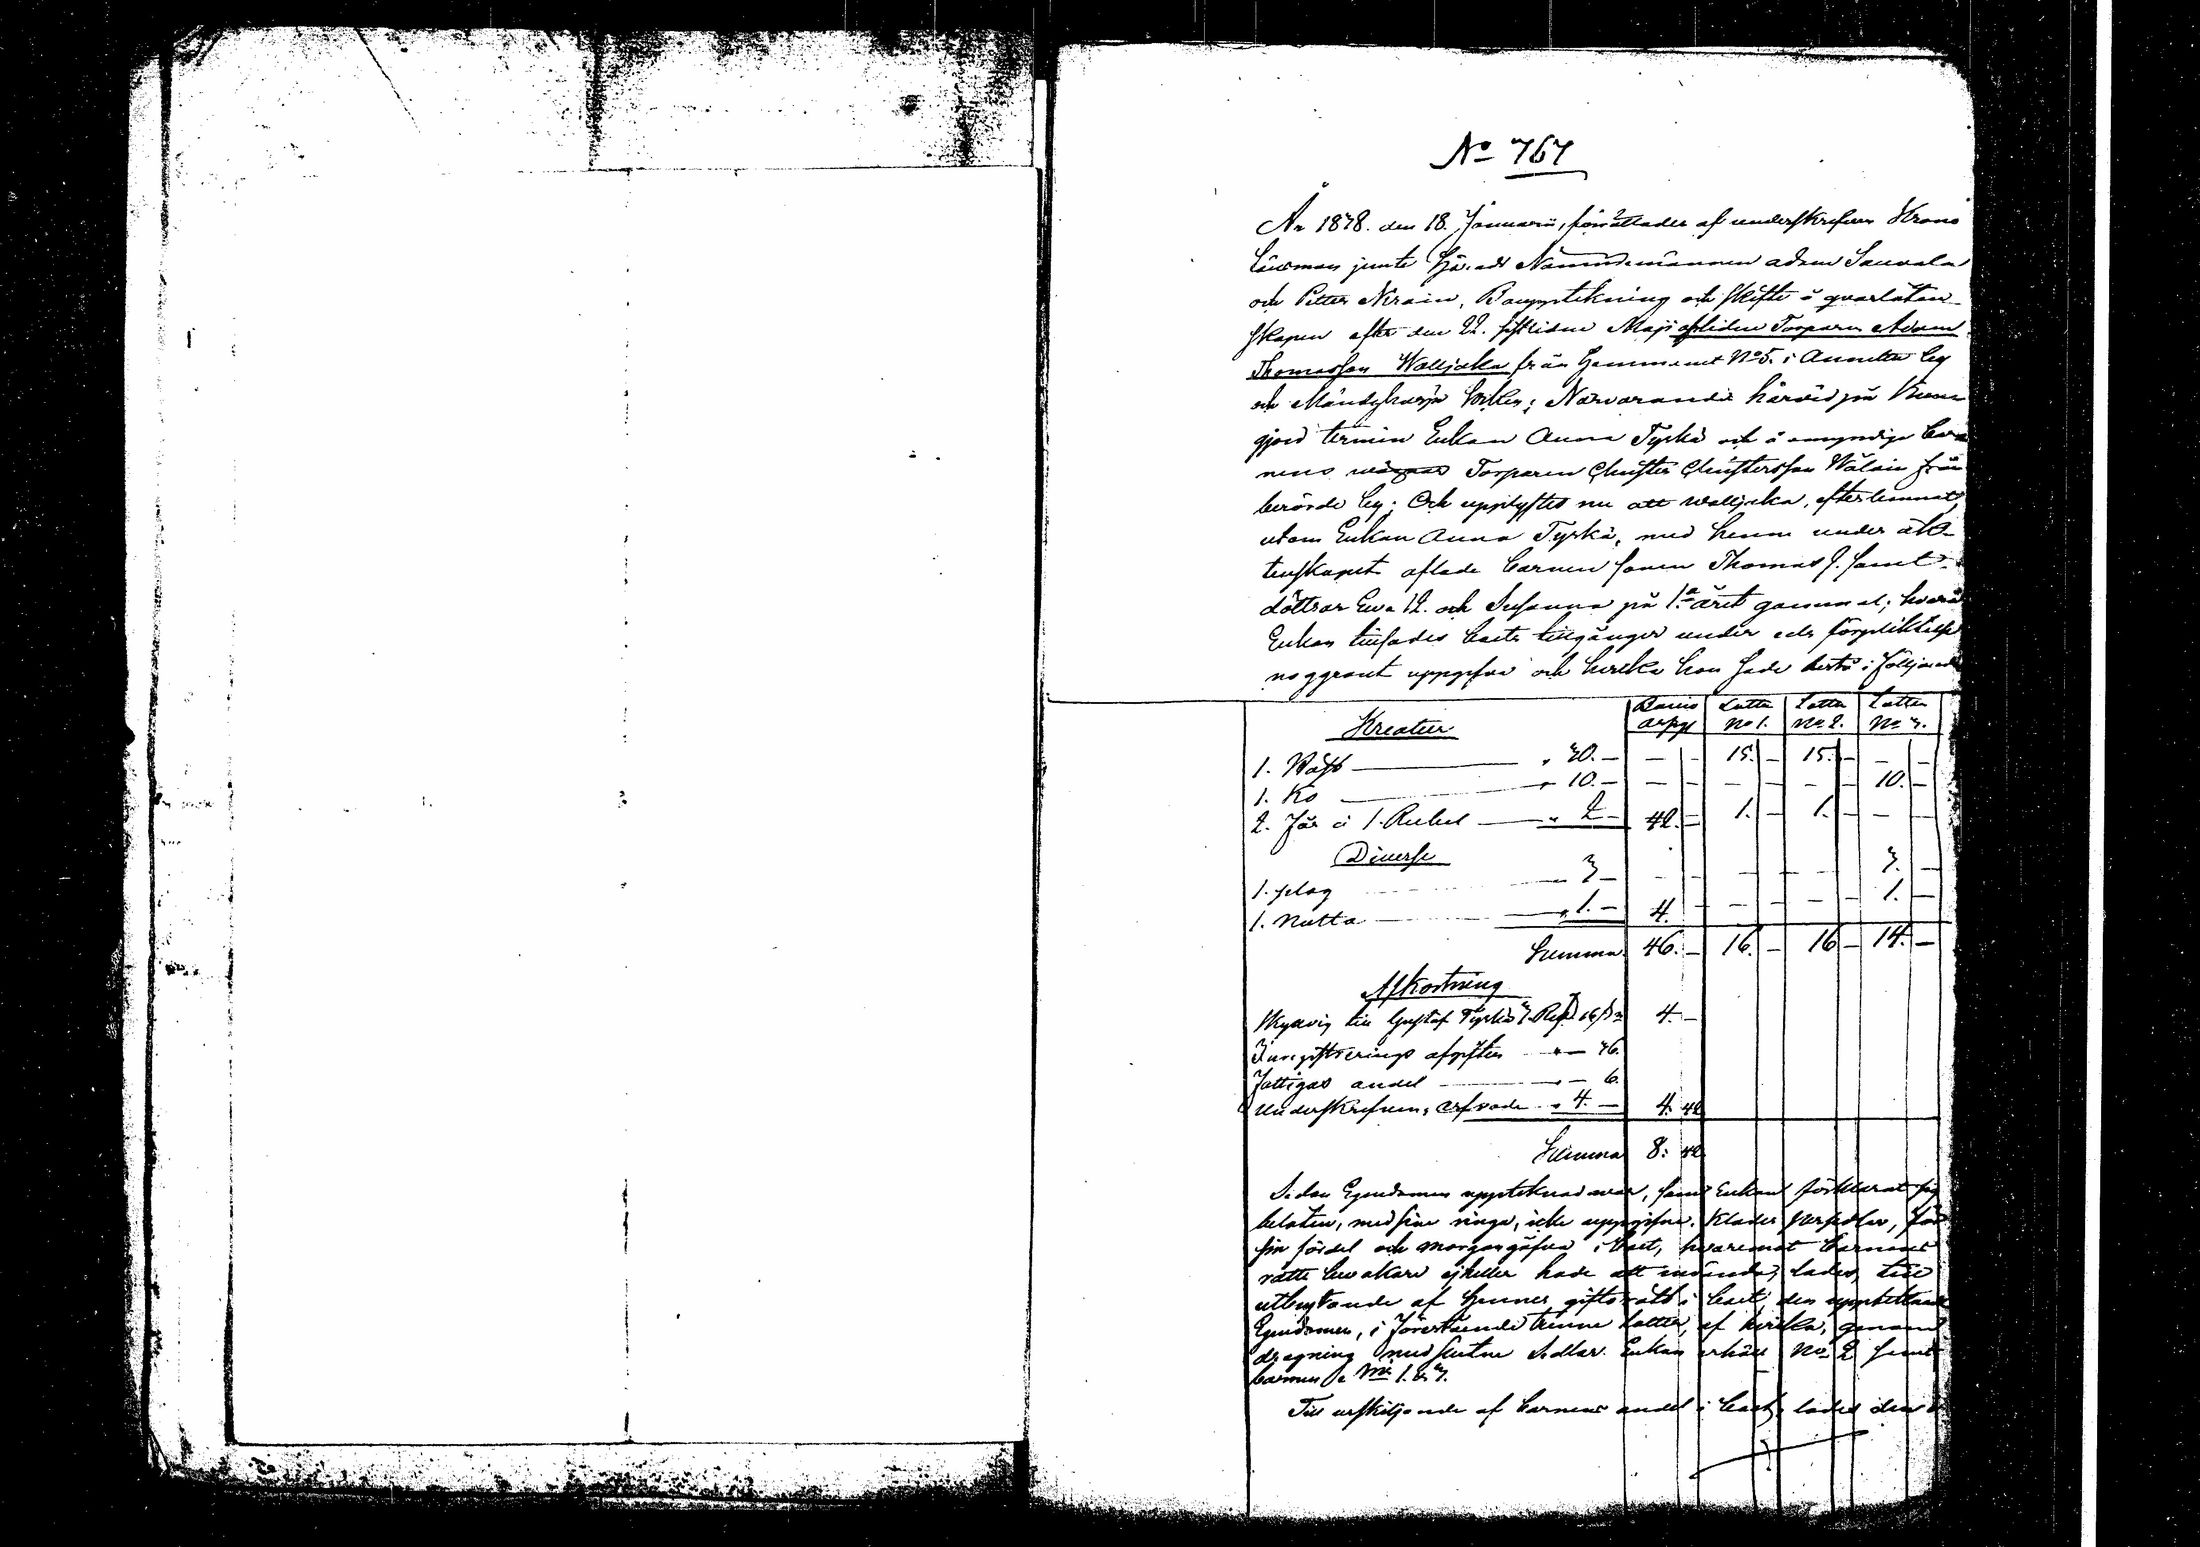 No 767
År 1878. den 18. Januarii, förrättades af underskrefven Krono
Länsman jemte Härads Nämndemännen Adam Sauvala
och Petter Nirain, Bouppteckning och Skifte å qvarlåten-
skapen efter den 22. sistlidne Maji afliden Torparen Adam
Thomasson Walljaka från Hemmanet No 5. i Annula by
och Mändyharju Socken; Närvarande härvid på Kun
gjord termin Enkan Anna Tyrkä och å omyndige bar
nens vägnar Torparen Christer Christersson Wälain från
berörde by; Och upplystes nu att Walljaka, efterlemnat,
utom Enkan Anna Tyrkä, med henne under äk-
tenskapet aflade barnen sonen Thomas 9. samt
döttrar Eva 12. och Susanna på 1.a året gammal; hvarå
Enkan tillsades boets tillgångar under eds förpliktelse
noggrant uppgifva och hvilka hon sade bestå i följande
Kreatur
Boets
Lotten Lotten Lotten
No 1. No 2. No 3.
1. Häst " 30. — — — 15. — 15. — — —
1. Ko " 10. — — — — — — — 10. —
2. Får à 1. Rubel " 2 — 42. — 1. — 1. — — —
Diverse
1. plog " 3 — — — — — — — 3. —
1. Notta " 1. — 4. — — — — — 1. —
Summa 46. — 16. — 16 — 14. —
Afkortning
Skyldig till Gustaf Tyrkä 4. —
Inregistrerings afgiften " — 36.
Fattigas andel " — 6.
Underskrefvens arfvode " 4. — 4. 42
Summa 8: 42
Sedan Egendomen upptecknad war, samt Enkan förklarat sig
belåten, med sine ringa, icke uppgifne Kläder persedlar, för
sin fördel och morgongåfva i boet, hvaremot barnens
rätte bevakare ejheller hade att invända, lades, till
utbrytande af hennes giftorätt i boet, den upptecknade
Egendomen, i förestående trenne lotter, af hvilka, genom
dragning med slutne Sedlar Enkan erhöll No 2 samt
barnen No 1. & 3.
Till urskiljande af barnens andel i boet, lades den